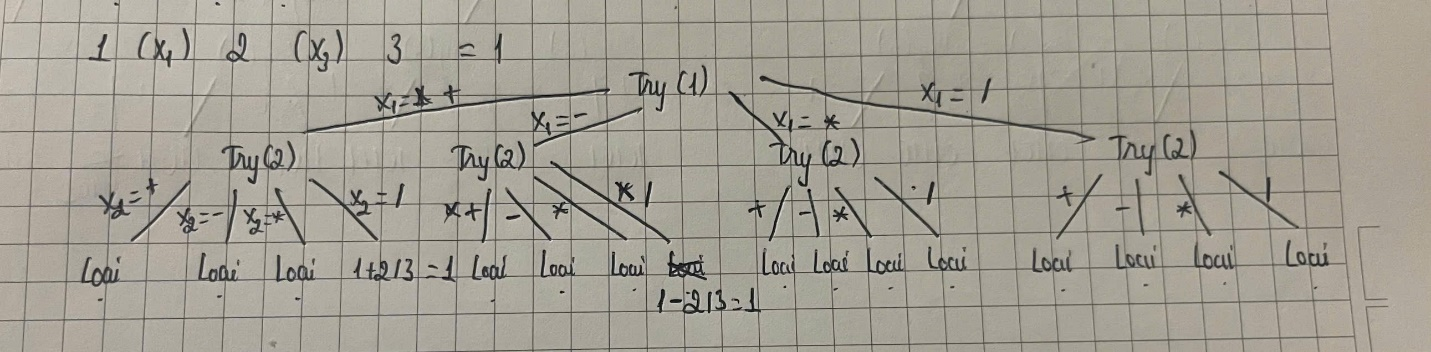 1 (x₁) 2 (x₂) 3 = 1
Try (1)
x₁ = +
x₁ = -
x₁ = *
x₁ = /
Try (2) Try (2) Try (2) Try (2)
x₂ = + x₂ = - x₂ = * x₂ = / + - * / + - * / + - * /
Loại Loại Loại 1+2/3 = 1 Loại Loại Loại Loại Loại Loại Loại Loại Loại Loại Loại
1-2/3=1